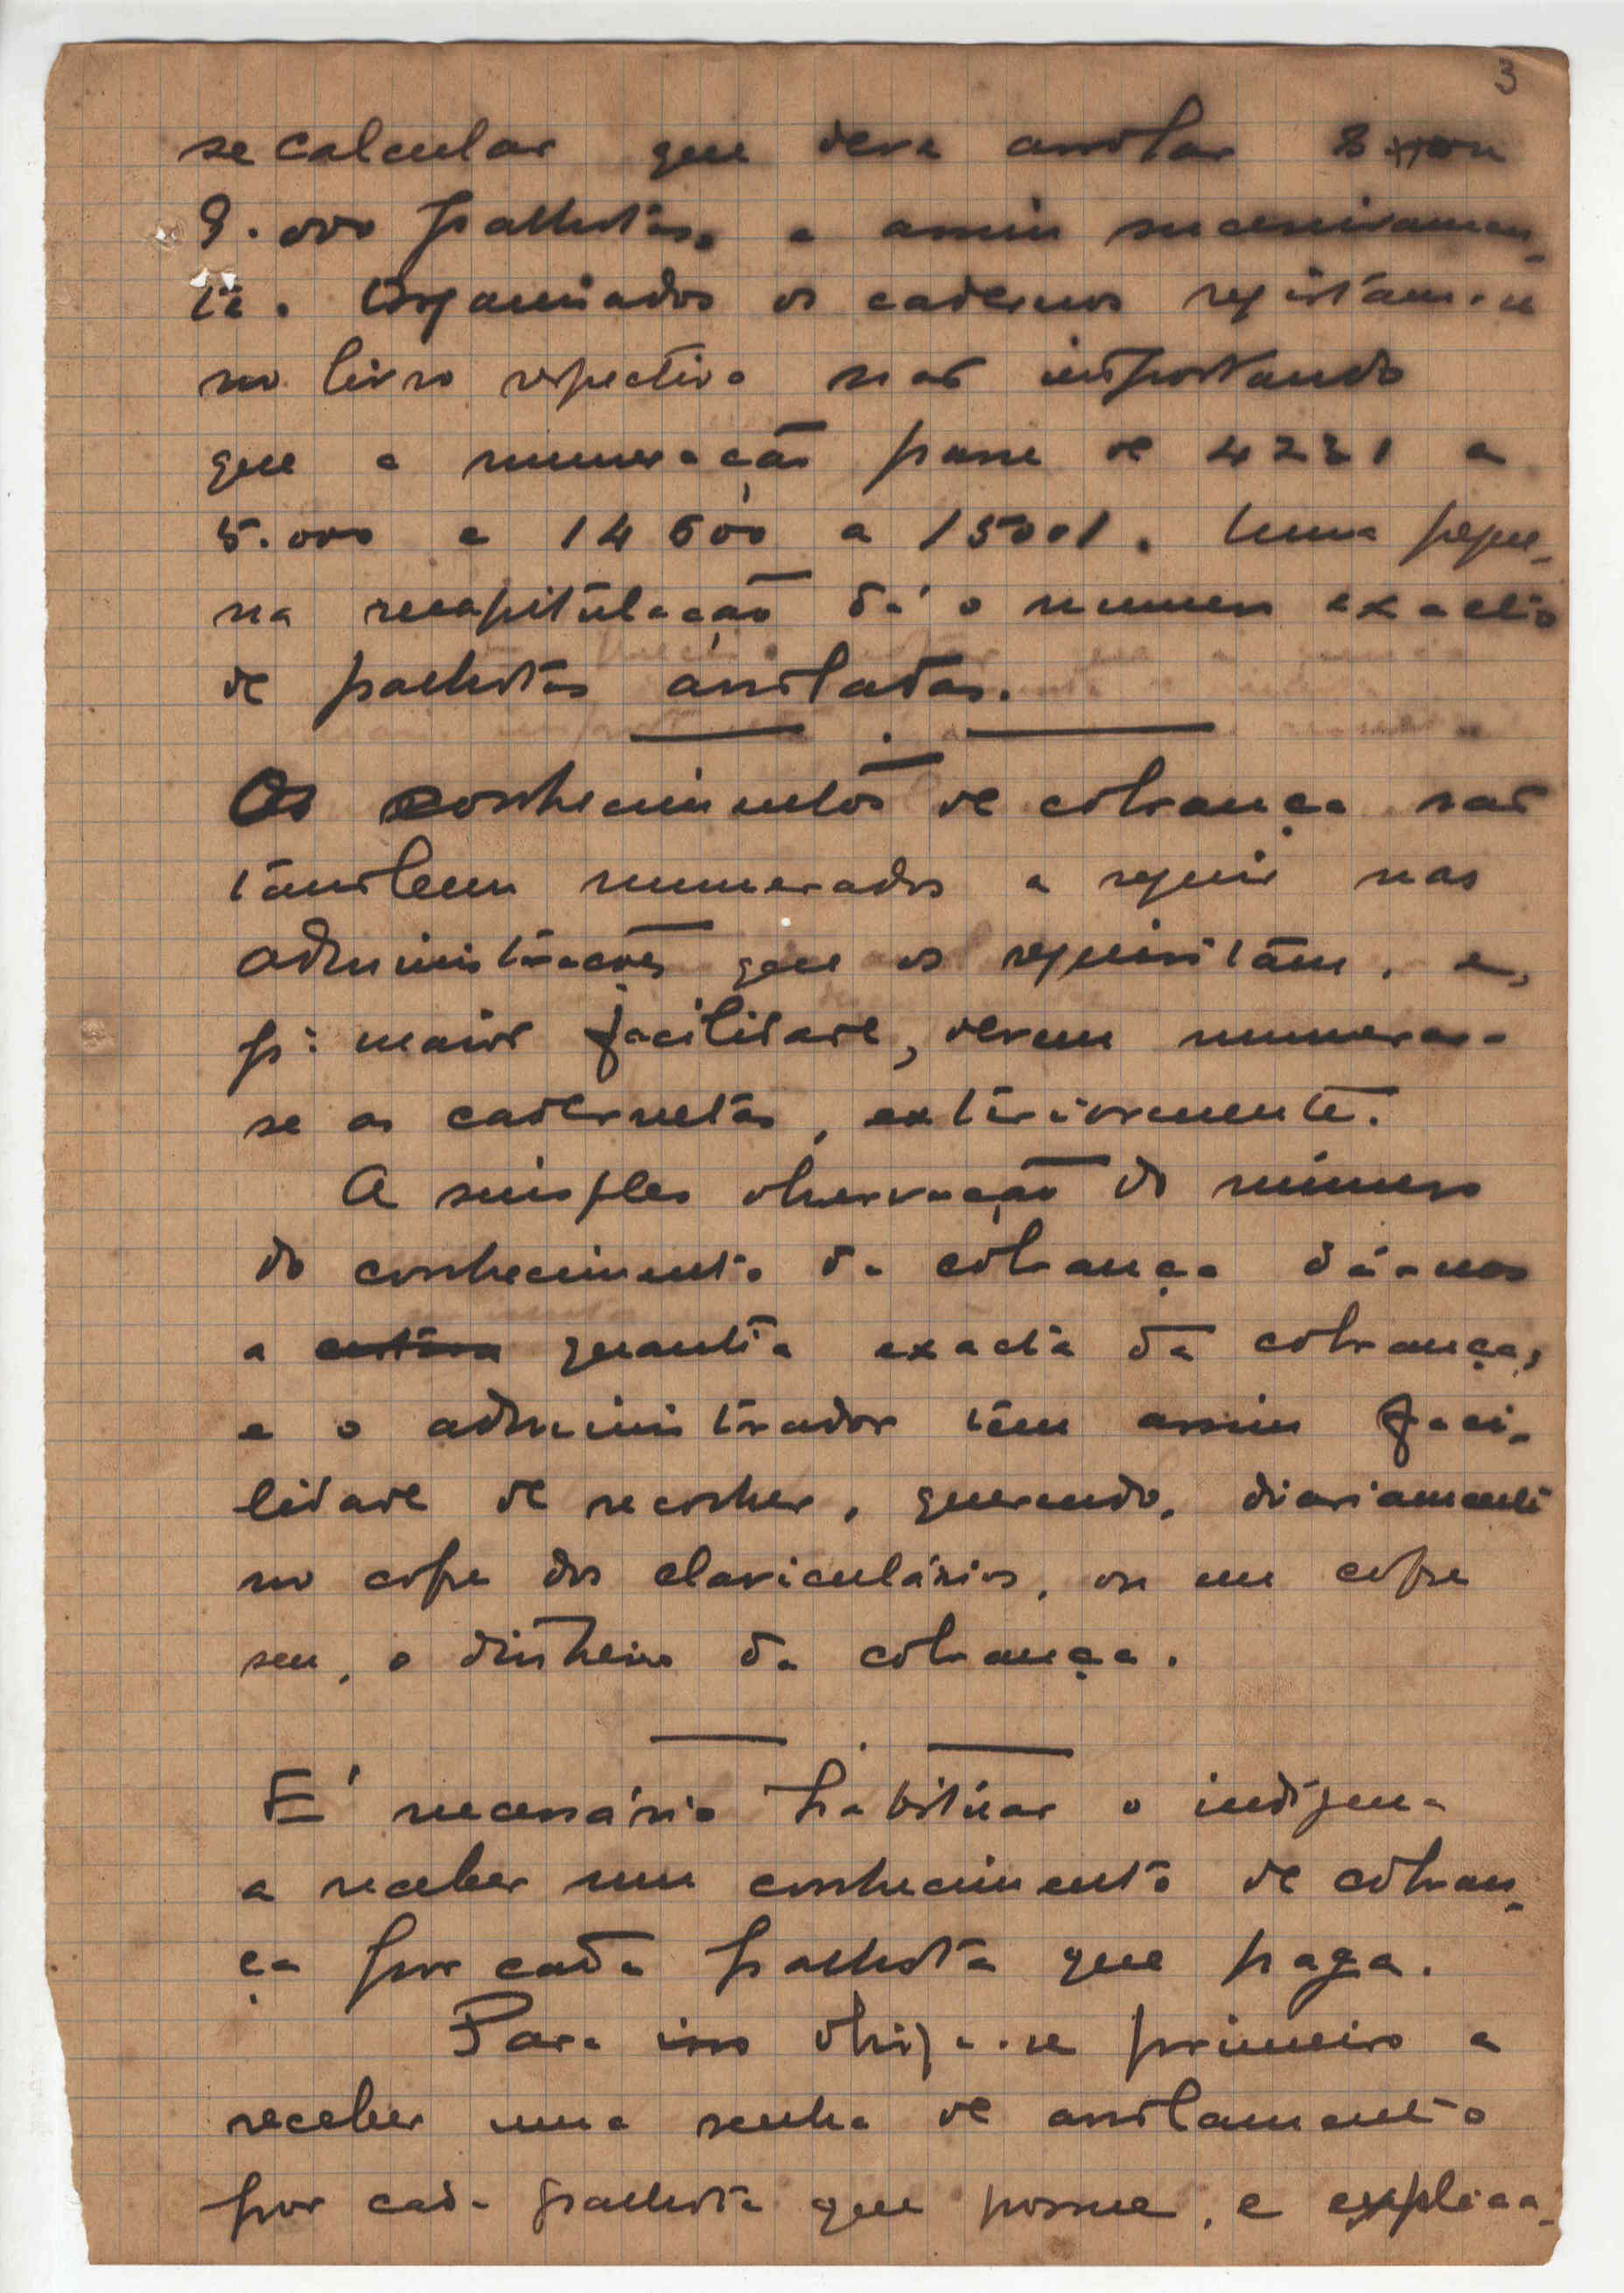 3
se calcular que deve arrolar 8 ou
9.000 palhotas, e assim sucessivamen-
te. Organisados os cadernos registam-se
no livro respectivo não importando
que a numeração passe de 4221 a
5.000 e 14600 a 15001. Uma peque-
na recapitulação dá o numero exacto
de palhotas arroladas.
Os conhecimentos de cobrança são
tambem numerados a seguir nas
administrações que os requisitam, e,
pª maior facilidade, devem numerar-
se as cadernetas, exteriormente.
A simples observação do número
do conhecimento da cobrança dá-nos
a quantia exacta da cobrança,
e o administrador tem assim faci-
lidade de recolher, querendo, diariamente
no cofre dos claviculários, ou em cofre
seu, o dinheiro da cobrança.
É necessário habituar o indígena
a receber um conhecimento de cobran-
ça por cada palhota que paga.
Para isso obriga-se primeiro a
receber uma senha de arrolamento
por cada palhota que possue, e explica-